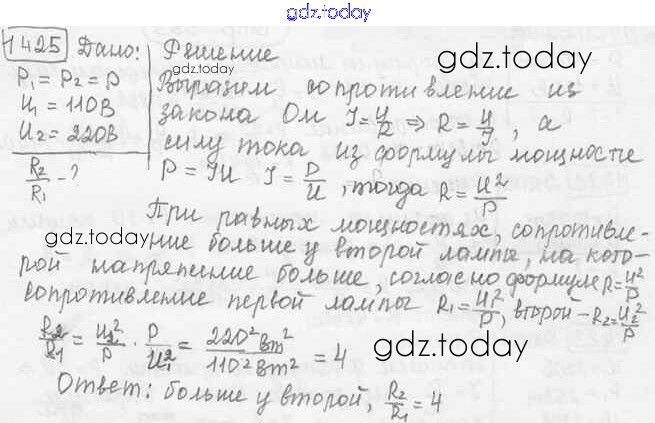 gdz.today
1425 Дано: Решение
P₁ = P₂ = P gdz.today gdz.today
U₁ = 110В Выразим сопротивление из
U₂ = 220В закона Ом I = U/R ⇒ R = U/I, а
силу тока из формулы мощности
R₂/R₁ - ? P = IU I = P/U, тогда R = U²/P
При равных мощностях, сопротивле-
gdz.today ние больше у второй лампы, на кото-
рой напряжение больше, согласно формуле R = U²/P
сопротивление первой лампы R₁ = U₁²/P, второй – R₂ = U₂²/P
R₂/R₁ = U₂²/P · P/U₁² = 220² Вт²/110² Вт² = 4 gdz.today
Ответ: больше у второй, R₂/R₁ = 4